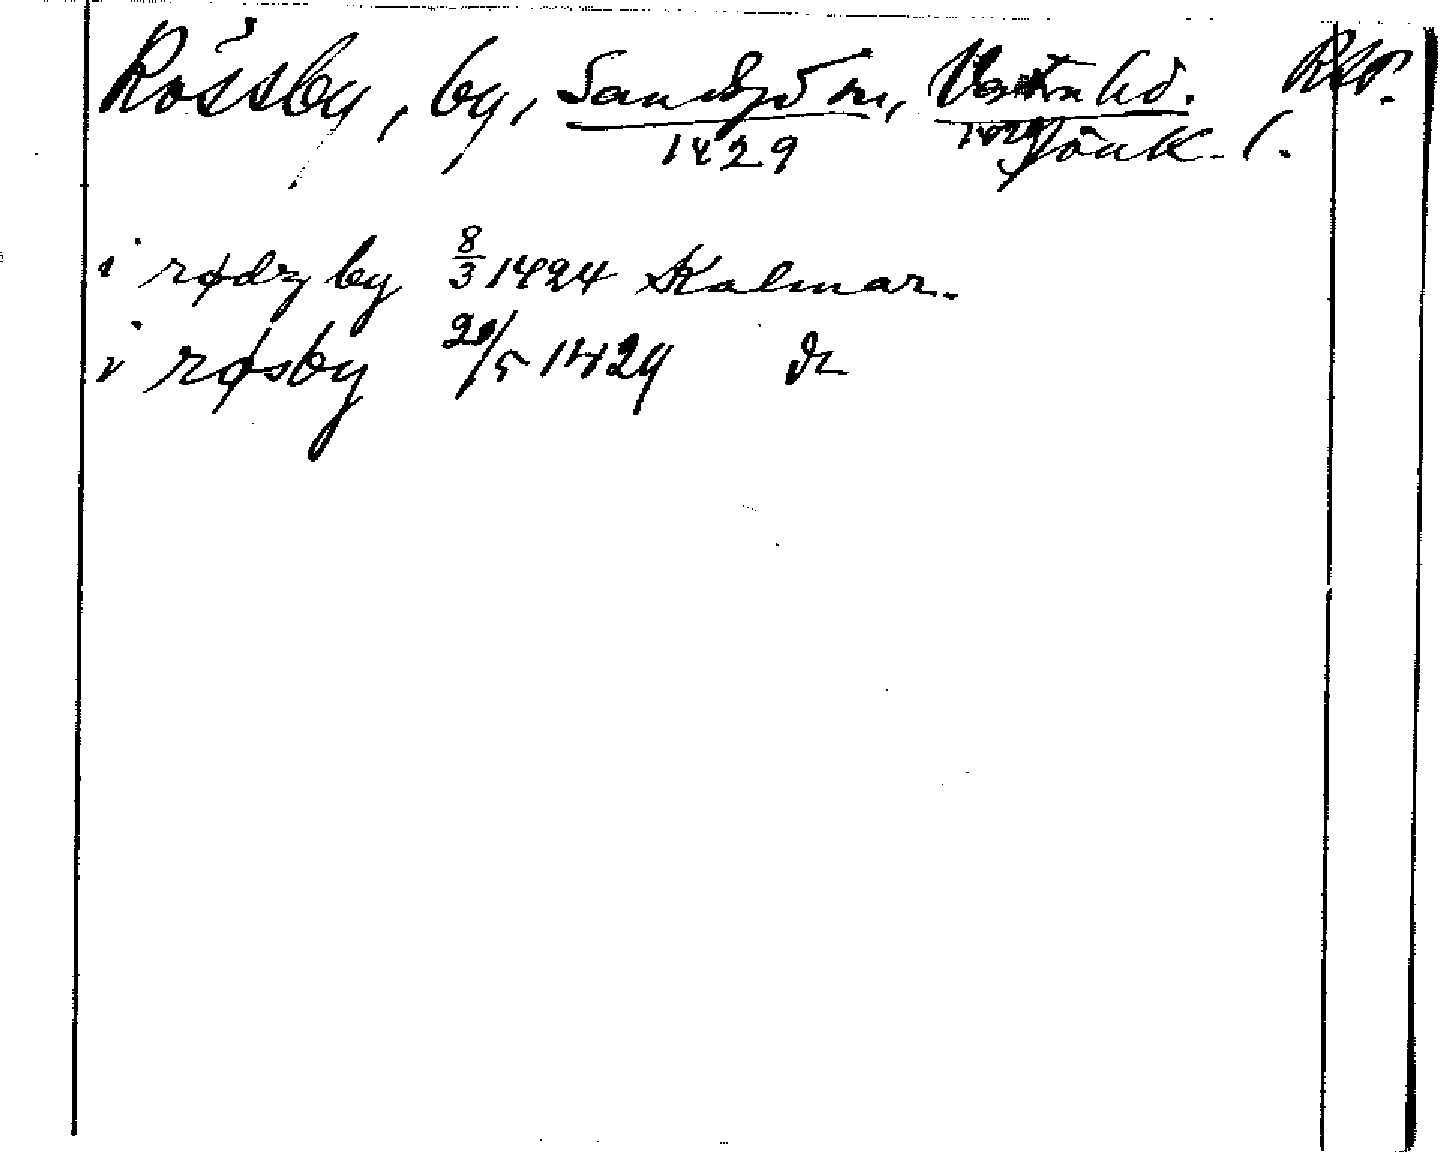 Rössby, by, Sandsjö sn, Västra hd.
1429 1429 Jönk. l.
i rødzby 8/3 1424 Kalmar.
i røsby 20/5 1429 do